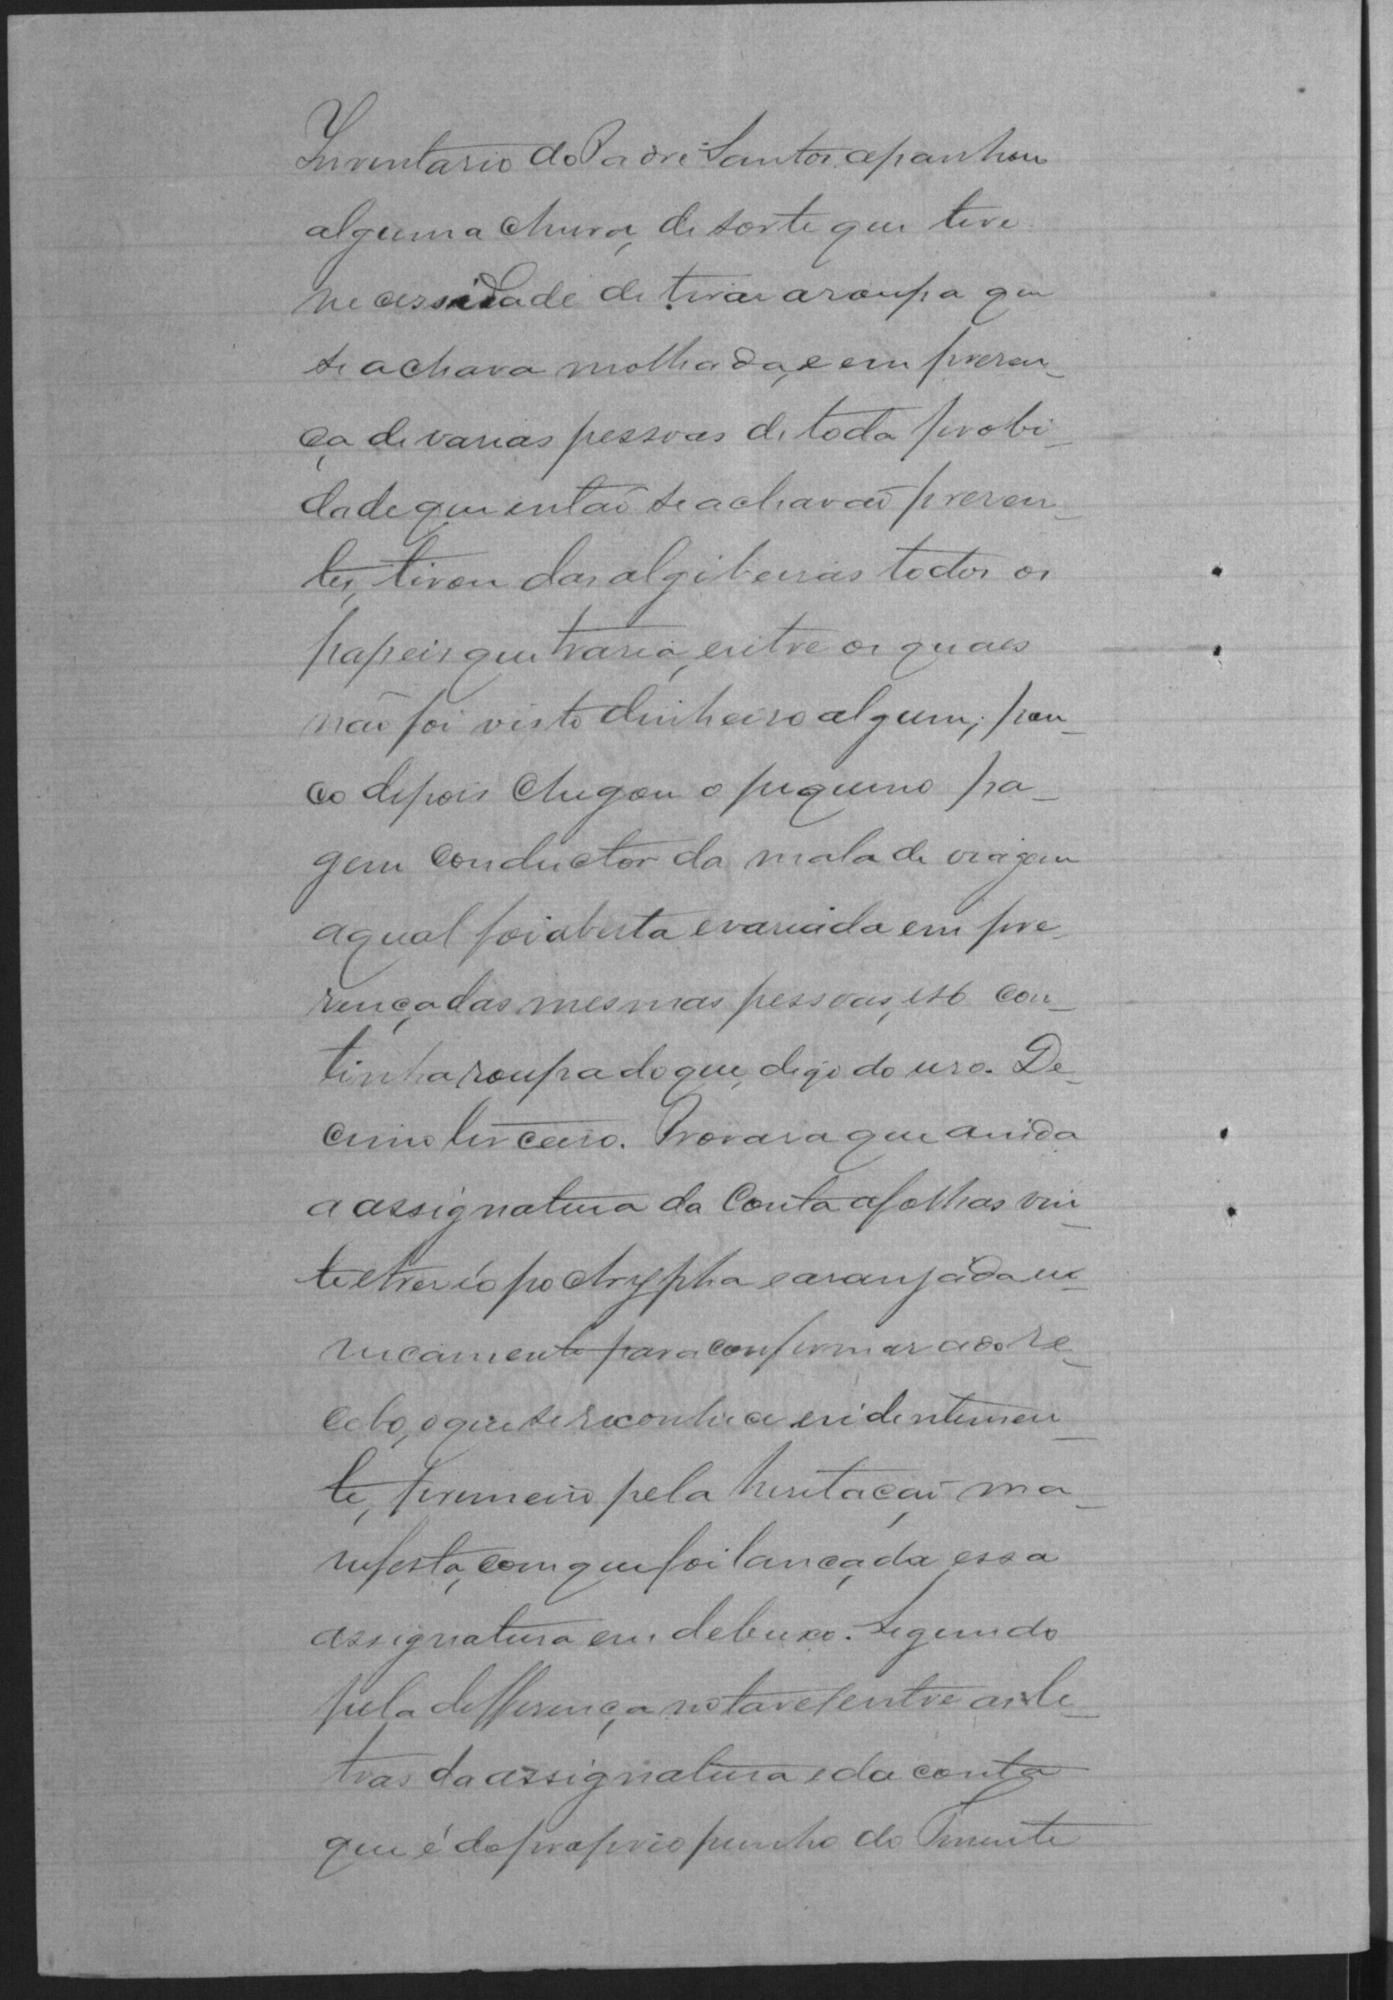 Inventario do Padre Santos apanhou
alguma chuva, de sorte que teve
necessidade de tirar a roupa que
se achava molhada, e em presen-
ça de varias pessoas de toda probi-
dade que então se achavão presen-
tes, tirou das algibeiras todos os
papeis que trasia, entre os quaes
não foi visto dinheiro algum; pou-
co depois chegou o pequeno pa-
gem conductor da mala de viagem
a qual foi aberta e variada em pre-
sença das mesmas pessoas, e só con-
tinha roupa do que, digo do uso. De-
cimo terceiro. Provara que ainda
a assignatura da Conta a folhas vin-
te e tres é apochrypha e aranjada u-
nicamente para confirmar a do re-
cebo, o que se reconhece evidentemen-
te, primeiro pela hesitação ma-
nifesta, com que foi lançada essa
assignatura em debuxo. Segundo
pela differença notavel entre as le-
tras da assignatura e da conta
que é do proprio punho do Tenente